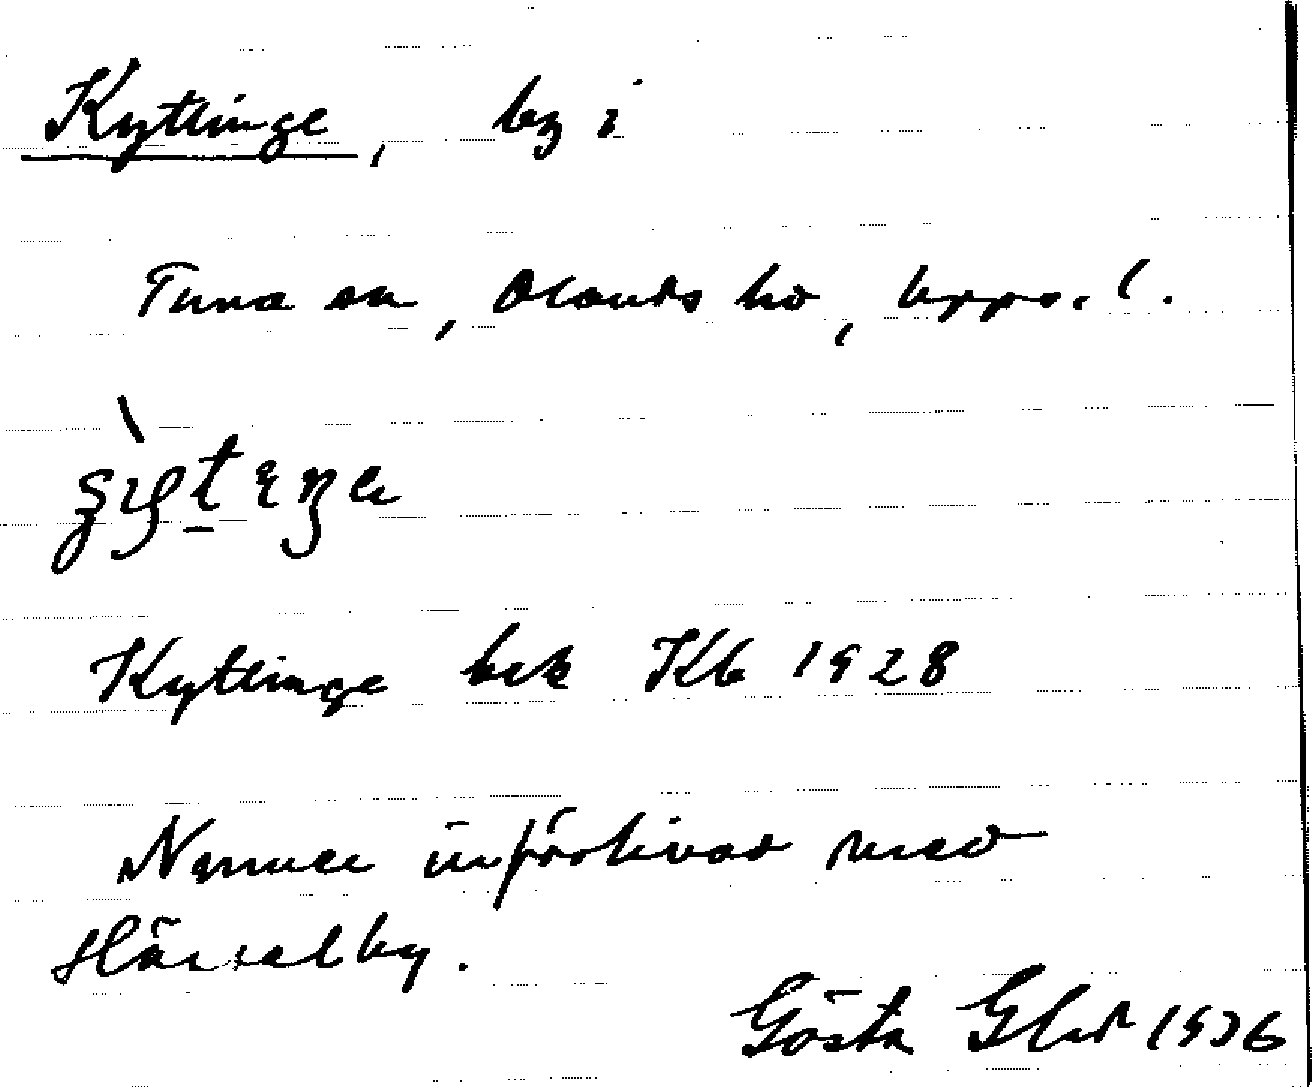 Kyttinge, by i
Tuna sn, Olands hd, Upps. l.
Kyttinge bek Kb 1928
Numer införlivad med
Hässelby.
Gösta 1936